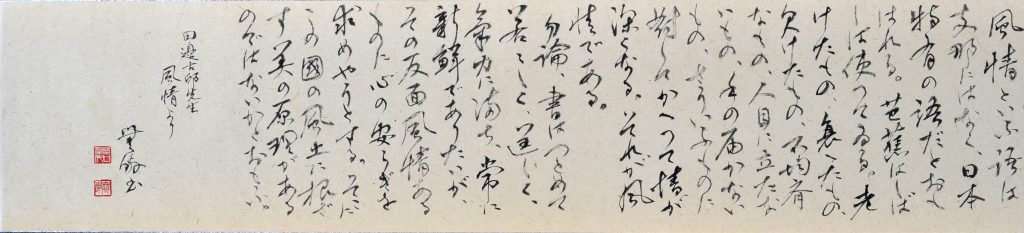 風情といふ語は
支那にはなく、日本
特有の語だとおも
はれる。芭蕉はしば
しば使つてゐる。老
けたもの、衰へたもの、
欠けたもの、不均斉
なもの、人目に立たな
いもの、手の届かない
もの、さういふものに
対してかへつて情が
深くなる。それが風
情である。
勿論、書はつとめて
若々しく、逞しく、
氣力に満ち、常に
新鮮でありたいが、
その反面風情ある
ものに心の安らぎを
求めやうとする。そこに
この國の風土に根ざ
す美の原理がある
のではないかとおもふ。
田邊古邨先生
風情より
書